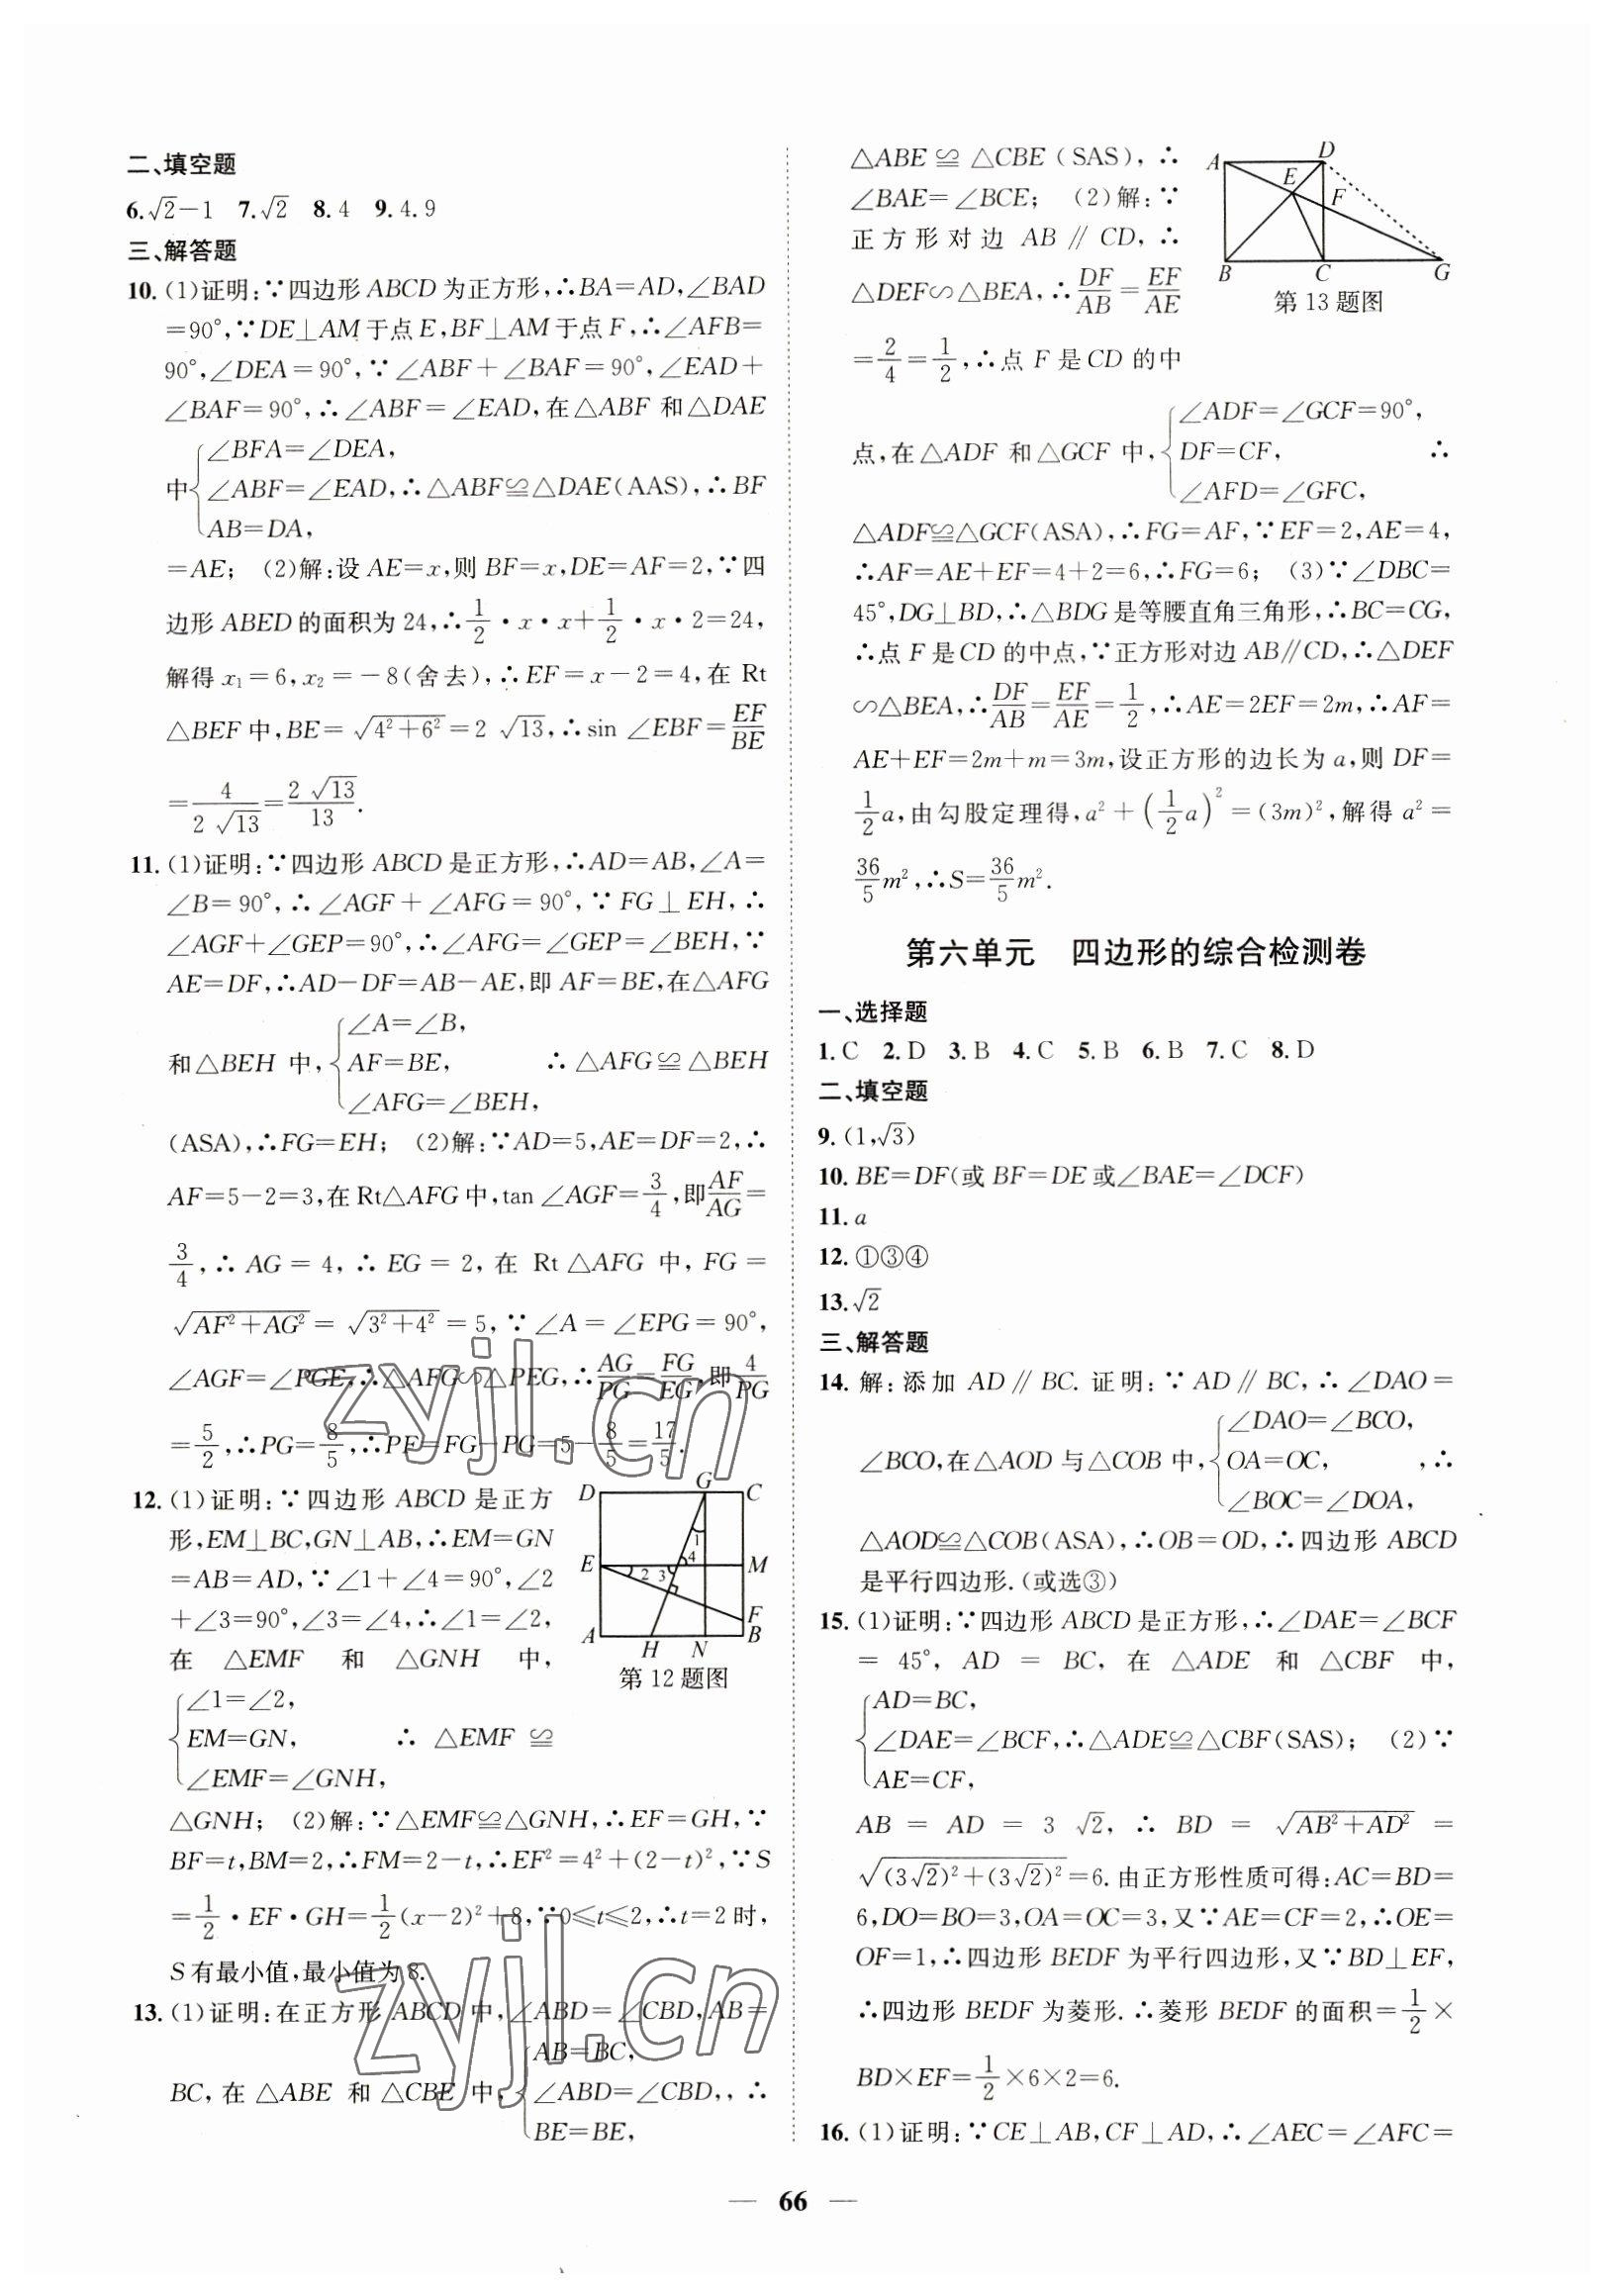 二、填空题
6.√2−1 7.√2 8.4 9.4.9
三、解答题
10.(1)证明:∵四边形ABCD为正方形,∴BA=AD,∠BAD
=90°,∵DE⊥AM于点E,BF⊥AM于点F,∴∠AFB=
90°,∠DEA=90°,∵∠ABF+∠BAF=90°,∠EAD+
∠BAF=90°,∴∠ABF=∠EAD,在△ABF和△DAE
∠BFA=∠DEA,
中{∠ABF=∠EAD,∴△ABF≌△DAE(AAS),∴BF
AB=DA,
=AE; (2)解:设AE=x,则BF=x,DE=AF=2,∵四
边形ABED的面积为24,∴1/2·x·x+1/2·x·2=24,
解得x₁=6,x₂=−8(舍去),∴EF=x−2=4,在Rt
△BEF中,BE=√(4²+6²)=2√13,∴sin∠EBF=EF/BE
=4/(2√13)=2√13/13.
11.(1)证明:∵四边形ABCD是正方形,∴AD=AB,∠A=
∠B=90°,∴∠AGF+∠AFG=90°,∵FG⊥EH,∴
∠AGF+∠GEP=90°,∴∠AFG=∠GEP=∠BEH,∵
AE=DF,∴AD−DF=AB−AE,即AF=BE,在△AFG
∠A=∠B,
和△BEH中,{AF=BE, ∴△AFG≌△BEH
∠AFG=∠BEH,
(ASA),∴FG=EH; (2)解:∵AD=5,AE=DF=2,∴
AF=5−2=3,在Rt△AFG中,tan∠AGF=3/4,即AF/AG=
3/4,∴AG=4,∴EG=2,在Rt△AFG中,FG=
√(AF²+AG²)=√(3²+4²)=5,∵∠A=∠EPG=90°,
∠AGF=∠PGE,∴△AFG∽△PEG,∴AG/PG=FG/EG,即4/PG
=5/2,∴PG=8/5,∴PF=FG−PG=5−8/5=17/5.
12.(1)证明:∵四边形ABCD是正方
形,EM⊥BC,GN⊥AB,∴EM=GN
=AB=AD,∵∠1+∠4=90°,∠2
+∠3=90°,∠3=∠4,∴∠1=∠2,
在△EMF和△GNH中,
∠1=∠2,
{EM=GN, ∴△EMF≌
∠EMF=∠GNH,
D G C
1
4
E 2 3 M
F
A H N B
第12题图
△GNH; (2)解:∵△EMF≌△GNH,∴EF=GH,∵
BF=t,BM=2,∴FM=2−t,∴EF²=4²+(2−t)²,∵S
=1/2·EF·GH=1/2(x−2)²+8,∵0≤t≤2,∴t=2时,
S有最小值,最小值为8.
13.(1)证明:在正方形ABCD中,∠ABD=∠CBD,AB=
AB=BC,
BC,在△ABE和△CBE中,{∠ABD=∠CBD,,∴
BE=BE,
△ABE≌△CBE(SAS),∴
∠BAE=∠BCE; (2)解:∵
正方形对边AB∥CD,∴
△DEF∽△BEA,∴DF/AB=EF/AE
=2/4=1/2,∴点F是CD的中
A D
E
F
B C G
第13题图
∠ADF=∠GCF=90°,
点,在△ADF和△GCF中,{DF=CF, ∴
∠AFD=∠GFC,
△ADF≌△GCF(ASA),∴FG=AF,∵EF=2,AE=4,
∴AF=AE+EF=4+2=6,∴FG=6; (3)∵∠DBC=
45°,DG⊥BD,∴△BDG是等腰直角三角形,∴BC=CG,
∴点F是CD的中点,∵正方形对边AB∥CD,∴△DEF
∽△BEA,∴DF/AB=EF/AE=1/2,∴AE=2EF=2m,∴AF=
AE+EF=2m+m=3m,设正方形的边长为a,则DF=
1/2a,由勾股定理得,a²+(1/2a)²=(3m)²,解得a²=
36/5m²,∴S=36/5m².
第六单元 四边形的综合检测卷
一、选择题
1.C 2.D 3.B 4.C 5.B 6.B 7.C 8.D
二、填空题
9.(1,√3)
10.BE=DF(或BF=DE或∠BAE=∠DCF)
11.a
12.①③④
13.√2
三、解答题
14.解:添加AD∥BC.证明:∵AD∥BC,∴∠DAO=
∠DAO=∠BCO,
∠BCO,在△AOD与△COB中,{OA=OC, ,∴
∠BOC=∠DOA,
△AOD≌△COB(ASA),∴OB=OD,∴四边形ABCD
是平行四边形.(或选③)
15.(1)证明:∵四边形ABCD是正方形,∴∠DAE=∠BCF
=45°,AD=BC,在△ADE和△CBF中,
AD=BC,
{∠DAE=∠BCF,∴△ADE≌△CBF(SAS); (2)∵
AE=CF,
AB=AD=3√2,∴BD=√(AB²+AD²)=
√((3√2)²+(3√2)²)=6.由正方形性质可得:AC=BD=
6,DO=BO=3,OA=OC=3,又∵AE=CF=2,∴OE=
OF=1,∴四边形BEDF为平行四边形,又∵BD⊥EF,
∴四边形BEDF为菱形.∴菱形BEDF的面积=1/2×
BD×EF=1/2×6×2=6.
16.(1)证明:∵CE⊥AB,CF⊥AD,∴∠AEC=∠AFC=
— 66 —
zyjl.cn
zyjl.cn